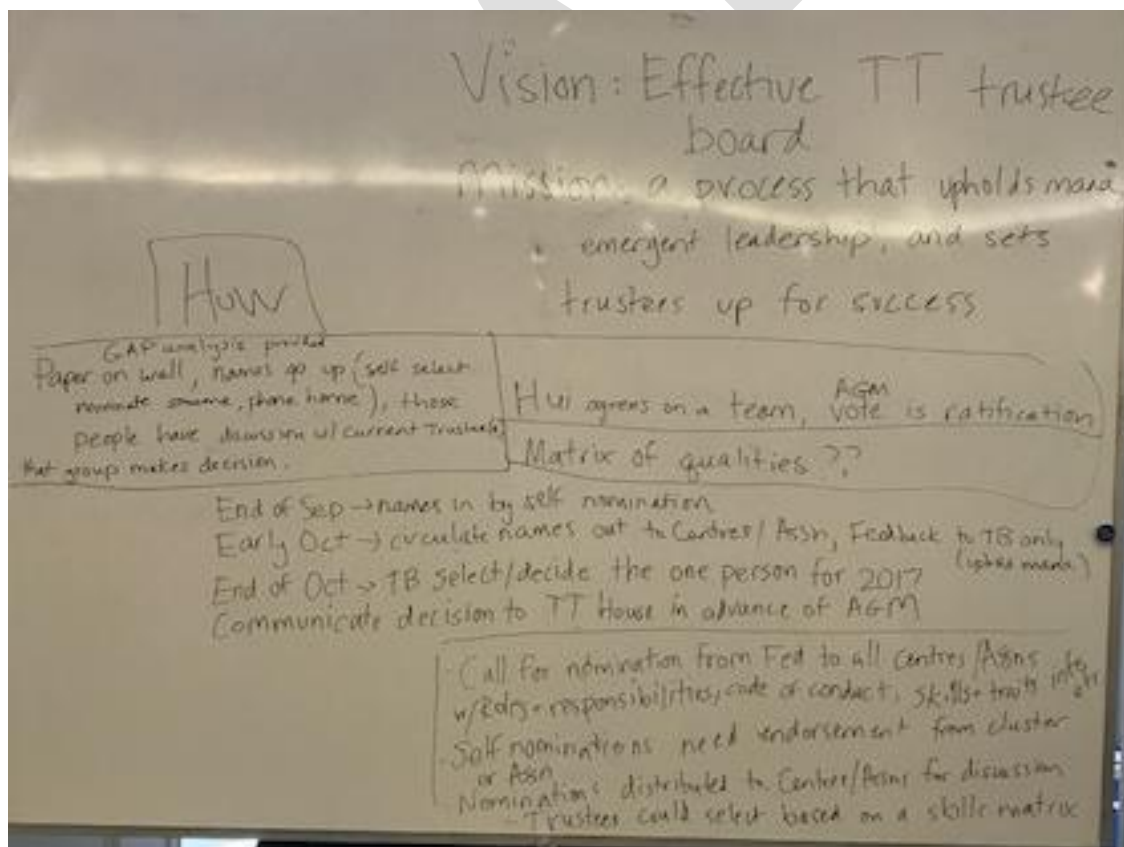 Vision: Effective TT trustee
board
Mission: a process that upholds mana
emergent leadership, and sets
trustees up for success
How
GAP analysis provided
Paper on wall, names go up (self select
nominate someone, phone home), those
people have discussion w/ current Trustees,
that group makes decision.
Hui agrees on a team, AGM vote is ratification
Matrix of qualities ??
End of Sep → names in by self nomination
Early Oct → circulate names out to Centres/Assn, Feedback to TB only
(upholds mana)
End of Oct → TB select/decide the one person for 2017
Communicate decision to TT House in advance of AGM
- Call for nomination from Fed to all Centres/Assns
w/ Roles + responsibilities, code of conduct, skills + traits
- Self nominations need endorsement from cluster
or Assn
Nominations distributed to Centres/Assns for discussion
- Trustees could select based on a skills matrix